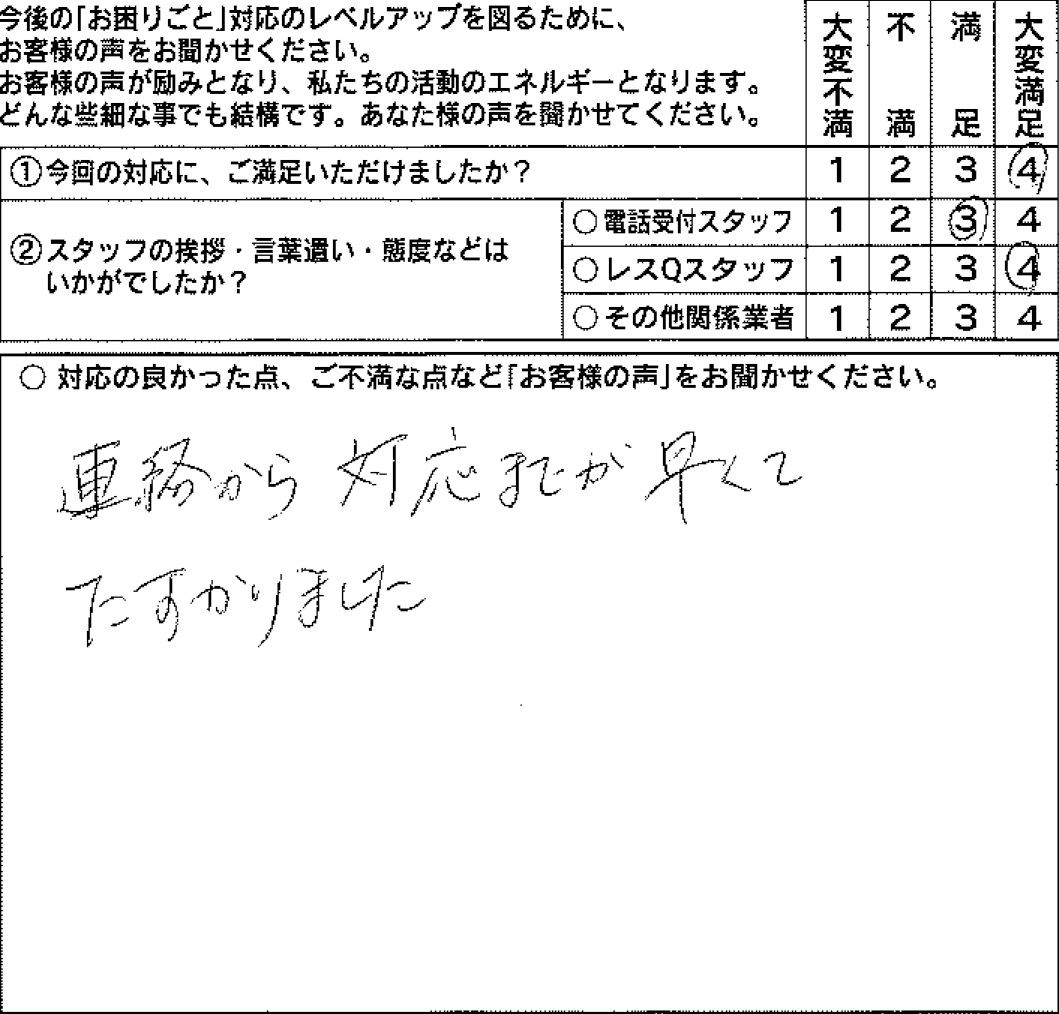 今後の「お困りごと」対応のレベルアップを図るために、
お客様の声をお聞かせください。
お客様の声が励みとなり、私たちの活動のエネルギーとなります。
どんな些細な事でも結構です。あなた様の声を聞かせてください。
大変不満 不満 満足 大変満足
①今回の対応に、ご満足いただけましたか？ 1 2 3 4
②スタッフの挨拶・言葉遣い・態度などは
いかがでしたか？
○電話受付スタッフ 1 2 3 4
○レスQスタッフ 1 2 3 4
○その他関係業者 1 2 3 4
○ 対応の良かった点、ご不満な点など「お客様の声」をお聞かせください。
連絡から対応までが早くて
たすかりました